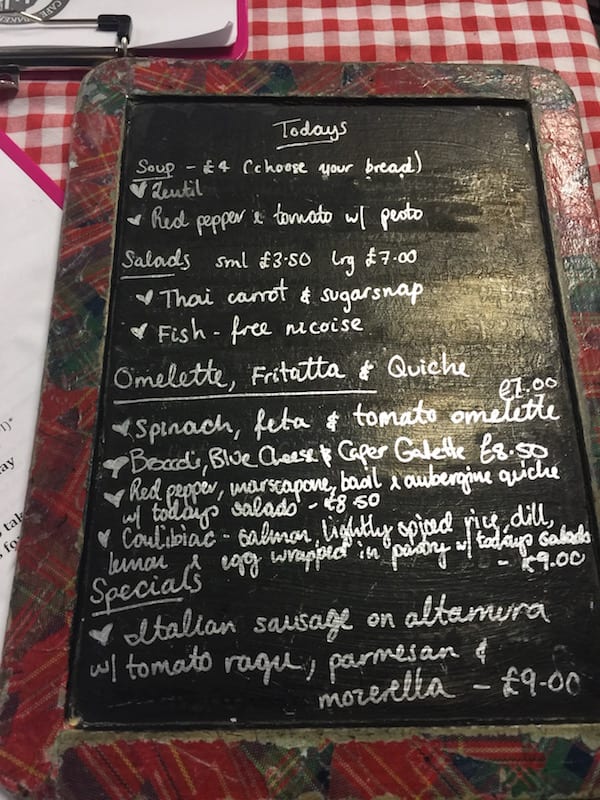 CAFE BAKER
Todays
Soup - £4 (choose your bread)
Lentil
Red pepper & tomato w/ pesto
Salads sml £3.50 lrg £7.00
Thai carrot & sugarsnap
Fish-free nicoise
Omelette, Fritatta & Quiche
£7.00
Spinach, feta & tomato omelette
Broccoli, Blue Cheese & Caper Galette £8.50
Red pepper, marscapone, basil & aubergine quiche
w/ todays salads - £8.50
Coulibiac - salmon, lightly spiced rice, dill,
lemon & egg wrapped in pastry w/ todays salads
- £9.00
Specials
Italian sausage on altamura
w/ tomato ragu, parmesan &
mozerella - £9.00